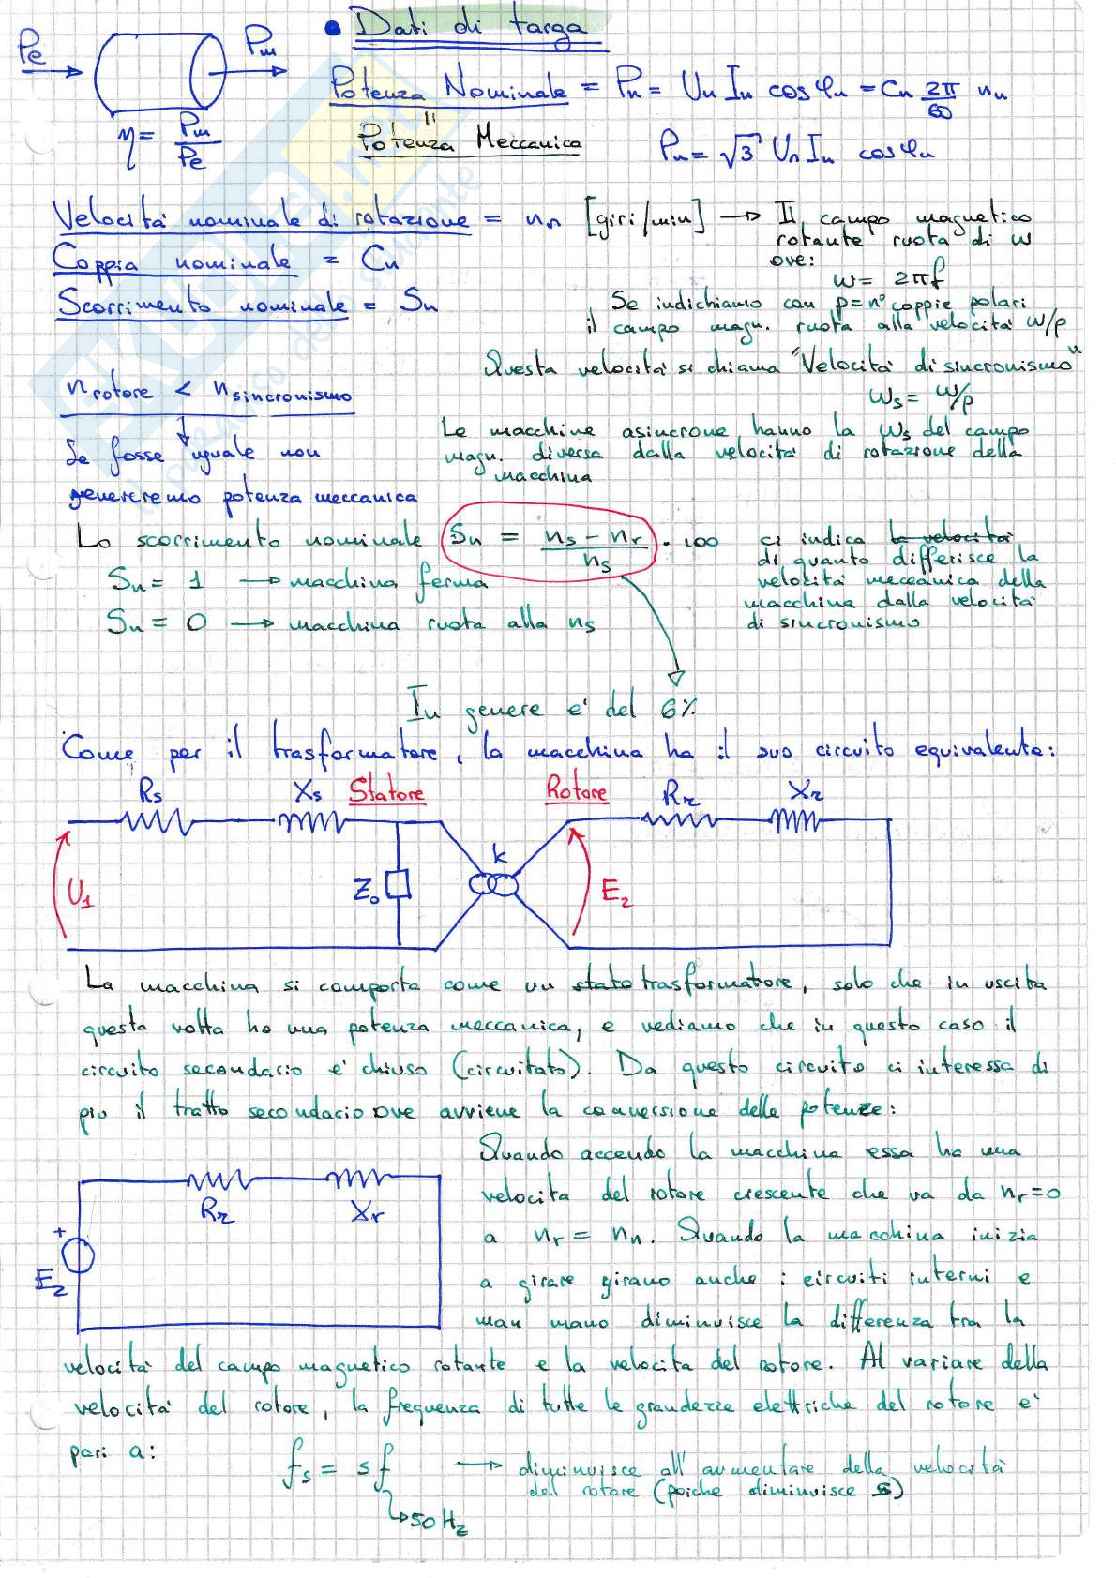 • Dati di targa
Pe Pm
η = Pm/Pe
Potenza Nominale = Pn = Un In cosφn = Cn 2π/60 nn
"
Potenza Meccanica
Pn = √3 Un In cosφn
Velocità nominale di rotazione = nn [giri/min] → Il campo magnetico
rotante ruota di ω
ove:
ω = 2πf
Coppia nominale = Cn
Scorrimento nominale = Sn
Se indichiamo con p = n° coppie polari
il campo magn. ruota alla velocità ω/p
Questa velocità si chiama "Velocità di sincronismo"
ωs = ω/p
n rotore < n sincronismo
Se fosse uguale non
genereremo potenza meccanica
Le macchine asincrone hanno la ωs del campo
magn. diversa dalla velocità di rotazione della
macchina
Lo scorrimento nominale Sn = ns - nr / ns · 100 ci indica la velocità
di quanto differisce la
velocità meccanica della
macchina dalla velocità
di sincronismo
Sn = 1 → macchina ferma
Sn = 0 → macchina ruota alla ns
In genere e' del 6%
Come per il trasformatore, la macchina ha il suo circuito equivalente:
Rs Xs Statore Rotore Rr Xr
U1 Zo k E2
La macchina si comporta come un stato trasformatore, solo che in uscita
questa volta ho una potenza meccanica, e vediamo che in questo caso il
circuito secondario e' chiuso (circuitato). Da questo circuito ci interessa di
piu il tratto secondario ove avviene la conversione delle potenze:
Rr Xr
+
E2
Quando accendo la macchina essa ha una
velocita del rotore crescente che va da nr = 0
a nr = nn. Quando la macchina inizia
a girare girano anche i circuiti interni e
man mano diminuisce la differenza tra la
velocità del campo magnetico rotante e la velocita del rotore. Al variare della
velocità del rotore, la frequenza di tutte le grandezze elettriche del rotore e'
pari a: fs = sf → diminuisce all'aumentare della velocità
del rotore (poiche diminuisce s)
50 Hz